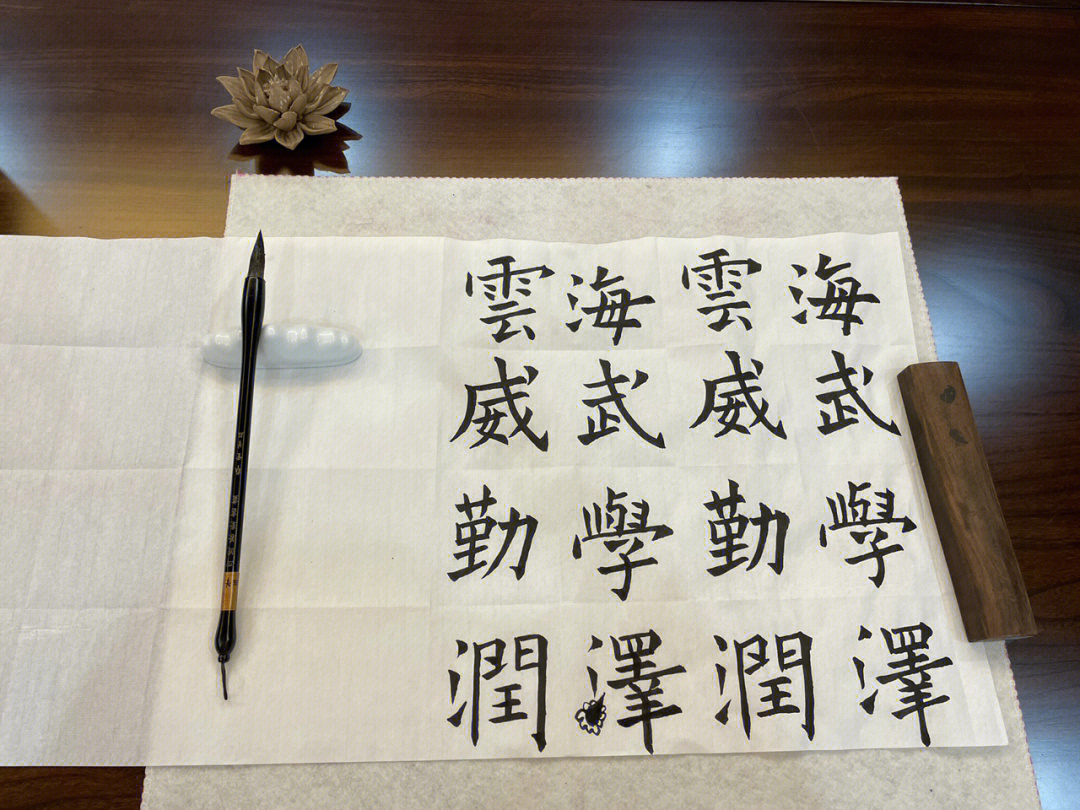 雲海雲海
威武威武
勤學勤學
潤澤潤澤